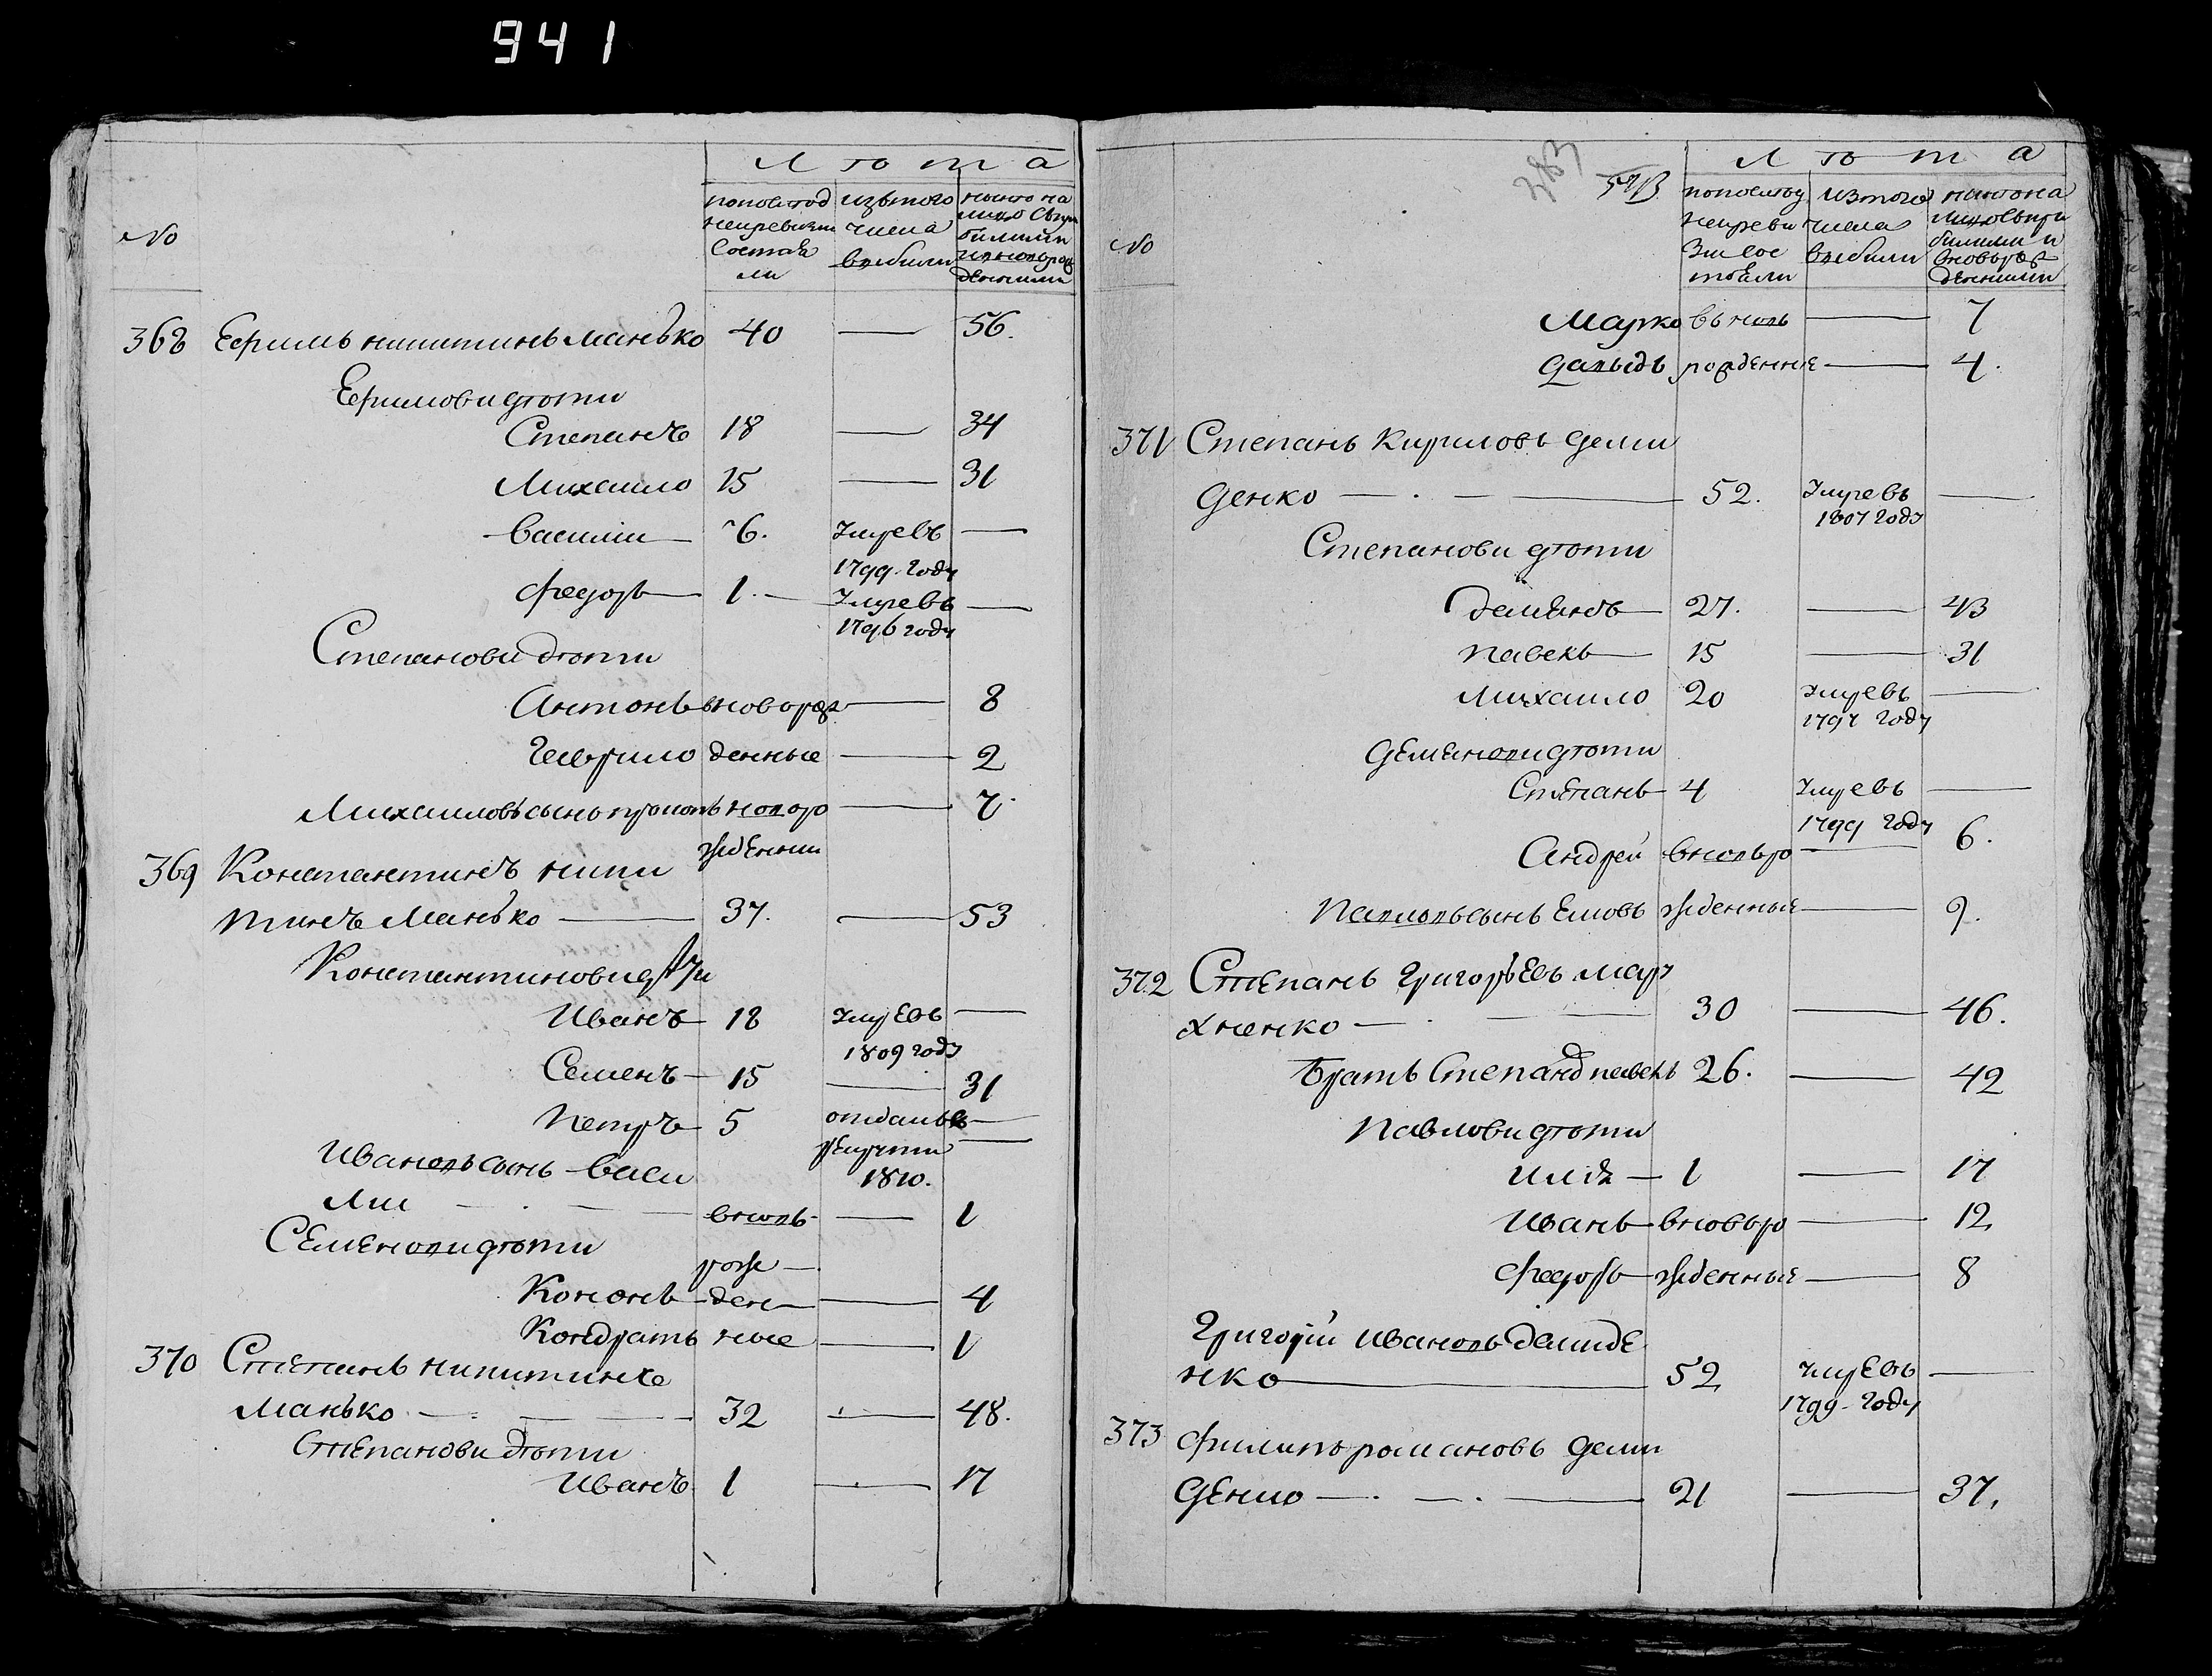 941
Лѣта
№
по последней ревизии состояли
изъ того числа выбыли
ныне на лицо съ прибылыми и вновь рожденными
368 Ефимъ никитинъ манько 40 — 56.
Ефимови дѣти
Степанъ 18 — 34
Михаило 15 — 31
василий 6. умревъ —
1799 году
федоръ 1. умревъ —
1796 году
Степанови дѣти
Антонъ вновь рож — 8
Гаврило денные — 2
Михаиловъ сынъ новоро — 7
жденний
369 Константинъ ники
тинъ Манько — 37. — 53
Константинови дѣти
Иванъ 18 умревъ —
1809 году
Семенъ 15 — 31
Петръ 5 отданъ въ —
рекруты —
1810.
Ивановъ сынъ васи
лий — вновь — 1
Семенови дѣти рож
Кононъ ден — 4
Кондратъ ные — 1
370 Степанъ никитинъ
Манько — 32 — 48.
Степанови дѣти
Иванъ 1 — 17
283
Лѣта
№
по последней ревизии состояли
изъ того числа выбыли
ныне на лицо съ прибылими и вновь рожденними
Марко вновь — 7
Давыдъ рожденние — 4.
371 Степанъ Кириловъ деми
денко — 52. умревъ —
1807 году
Степанови дѣти
Деменъ 27. — 43
павелъ 15 — 31
михаило 20 умревъ —
1797 году
деменови дѣти
Степанъ 4 умревъ —
1799 году
Андрей вновьро — 6.
Павловъ сынъ жденные — 9.
372 Степанъ Григорьевъ мар
хненко — 30 — 46.
Братъ Степана павелъ 26. — 42
Павлови дѣти
илья — 1 — 17
иванъ вновьро — 12
федоръ жденные — 8
Григорий Ивановъ демиде
нко — 52 умревъ —
1799 году
373 филипъ романовъ деми
денко — 21 — 37.